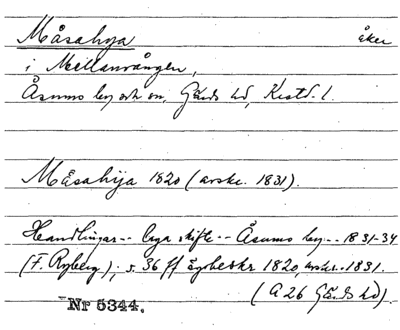 Måsahya åker
i Mellanvången,
Åsums by och sn, Gärds hd, Kristd. l.
Måsahija 1820 (avskr. 1831).
Handlingar -- laga skifte -- Åsums by -- 1831-34
(F. Ryberg); s. 36 ff ägobeskr 1820, avskr. 1831.
(A 26 Gärds hd)
Nr 5344.